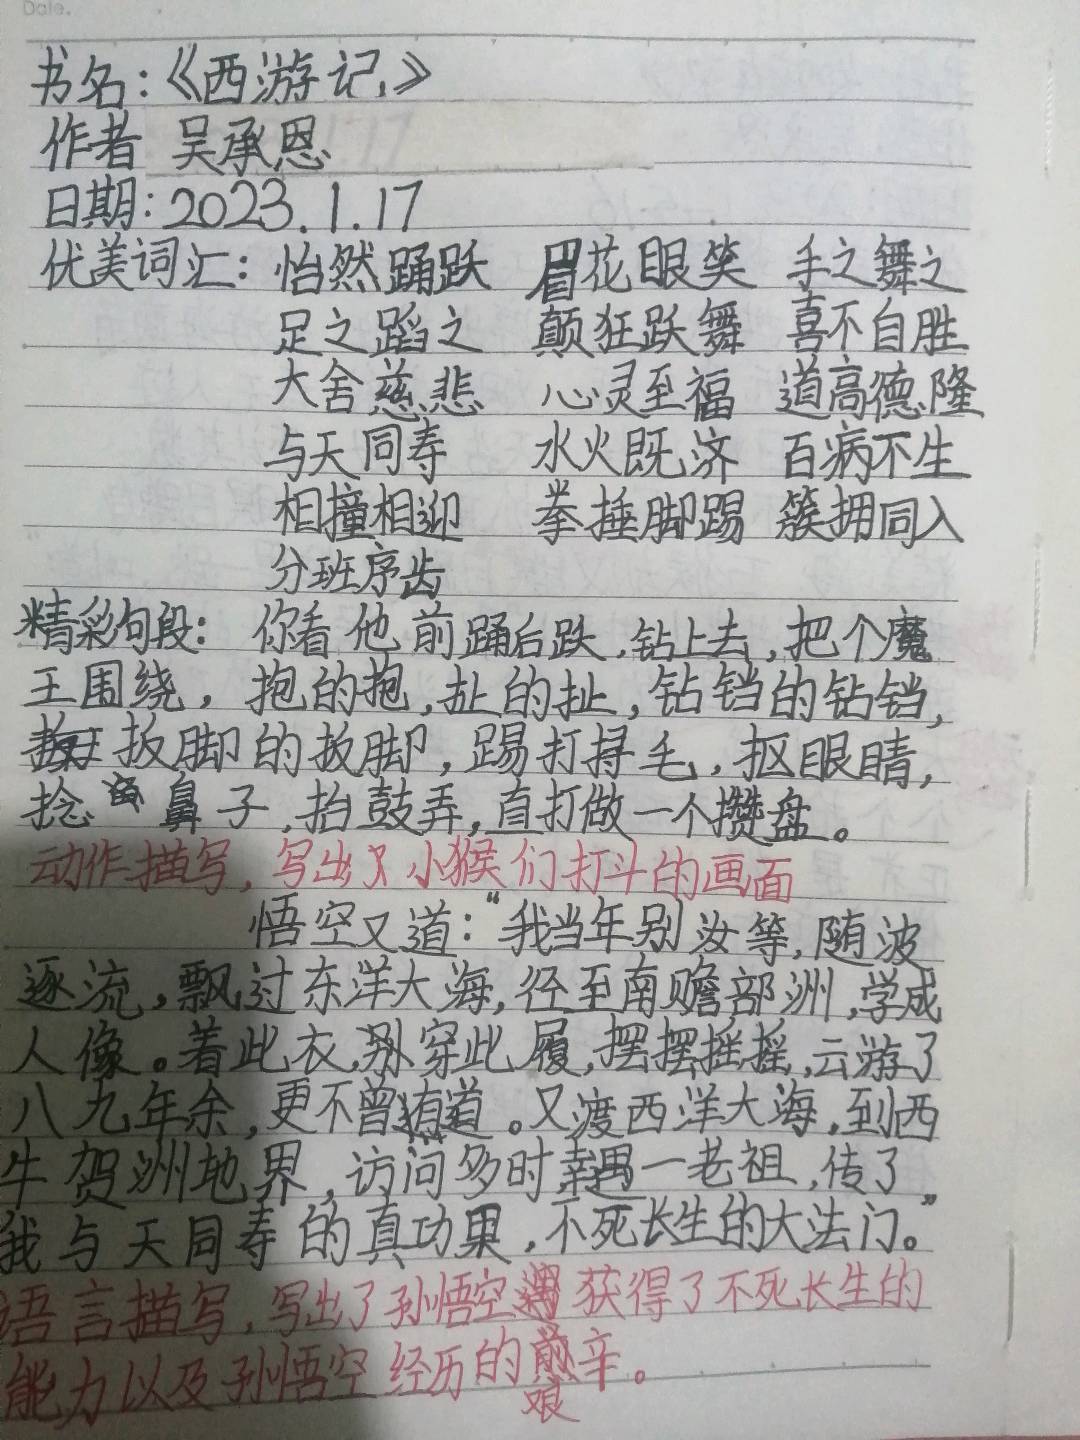 Date.
书名：《西游记》
作者 吴承恩
日期：2023.1.17
优美词汇：怡然踊跃 眉花眼笑 手之舞之
足之蹈之 颠狂跃舞 喜不自胜
大舍慈悲 心灵至福 道高德隆
与天同寿 水火既济 百病不生
相撞相迎 拳捶脚踢 簇拥同入
分班序齿
精彩句段：你看他前踊后跌，钻上去，把个魔
王围绕，抱的抱，扯的扯，钻铛的钻铛，
扳脚的扳脚，踢打挦毛，抠眼睛，
捻鼻子，抬鼓弄，直打做一个攒盘。
动作描写，写出了小猴们打斗的画面
悟空又道：“我当年别汝等，随波
逐流，飘过东洋大海，径至南赡部洲，学成
人像。着此衣，穿此履，摆摆摇摇，云游了
八九年余，更不曾有道。又渡西洋大海，到西
牛贺洲地界，访问多时，幸遇一老祖，传了
我与天同寿的真功果，不死长生的大法门。”
语言描写，写出了孙悟空获得了不死长生的
能力以及孙悟空经历的艰辛。